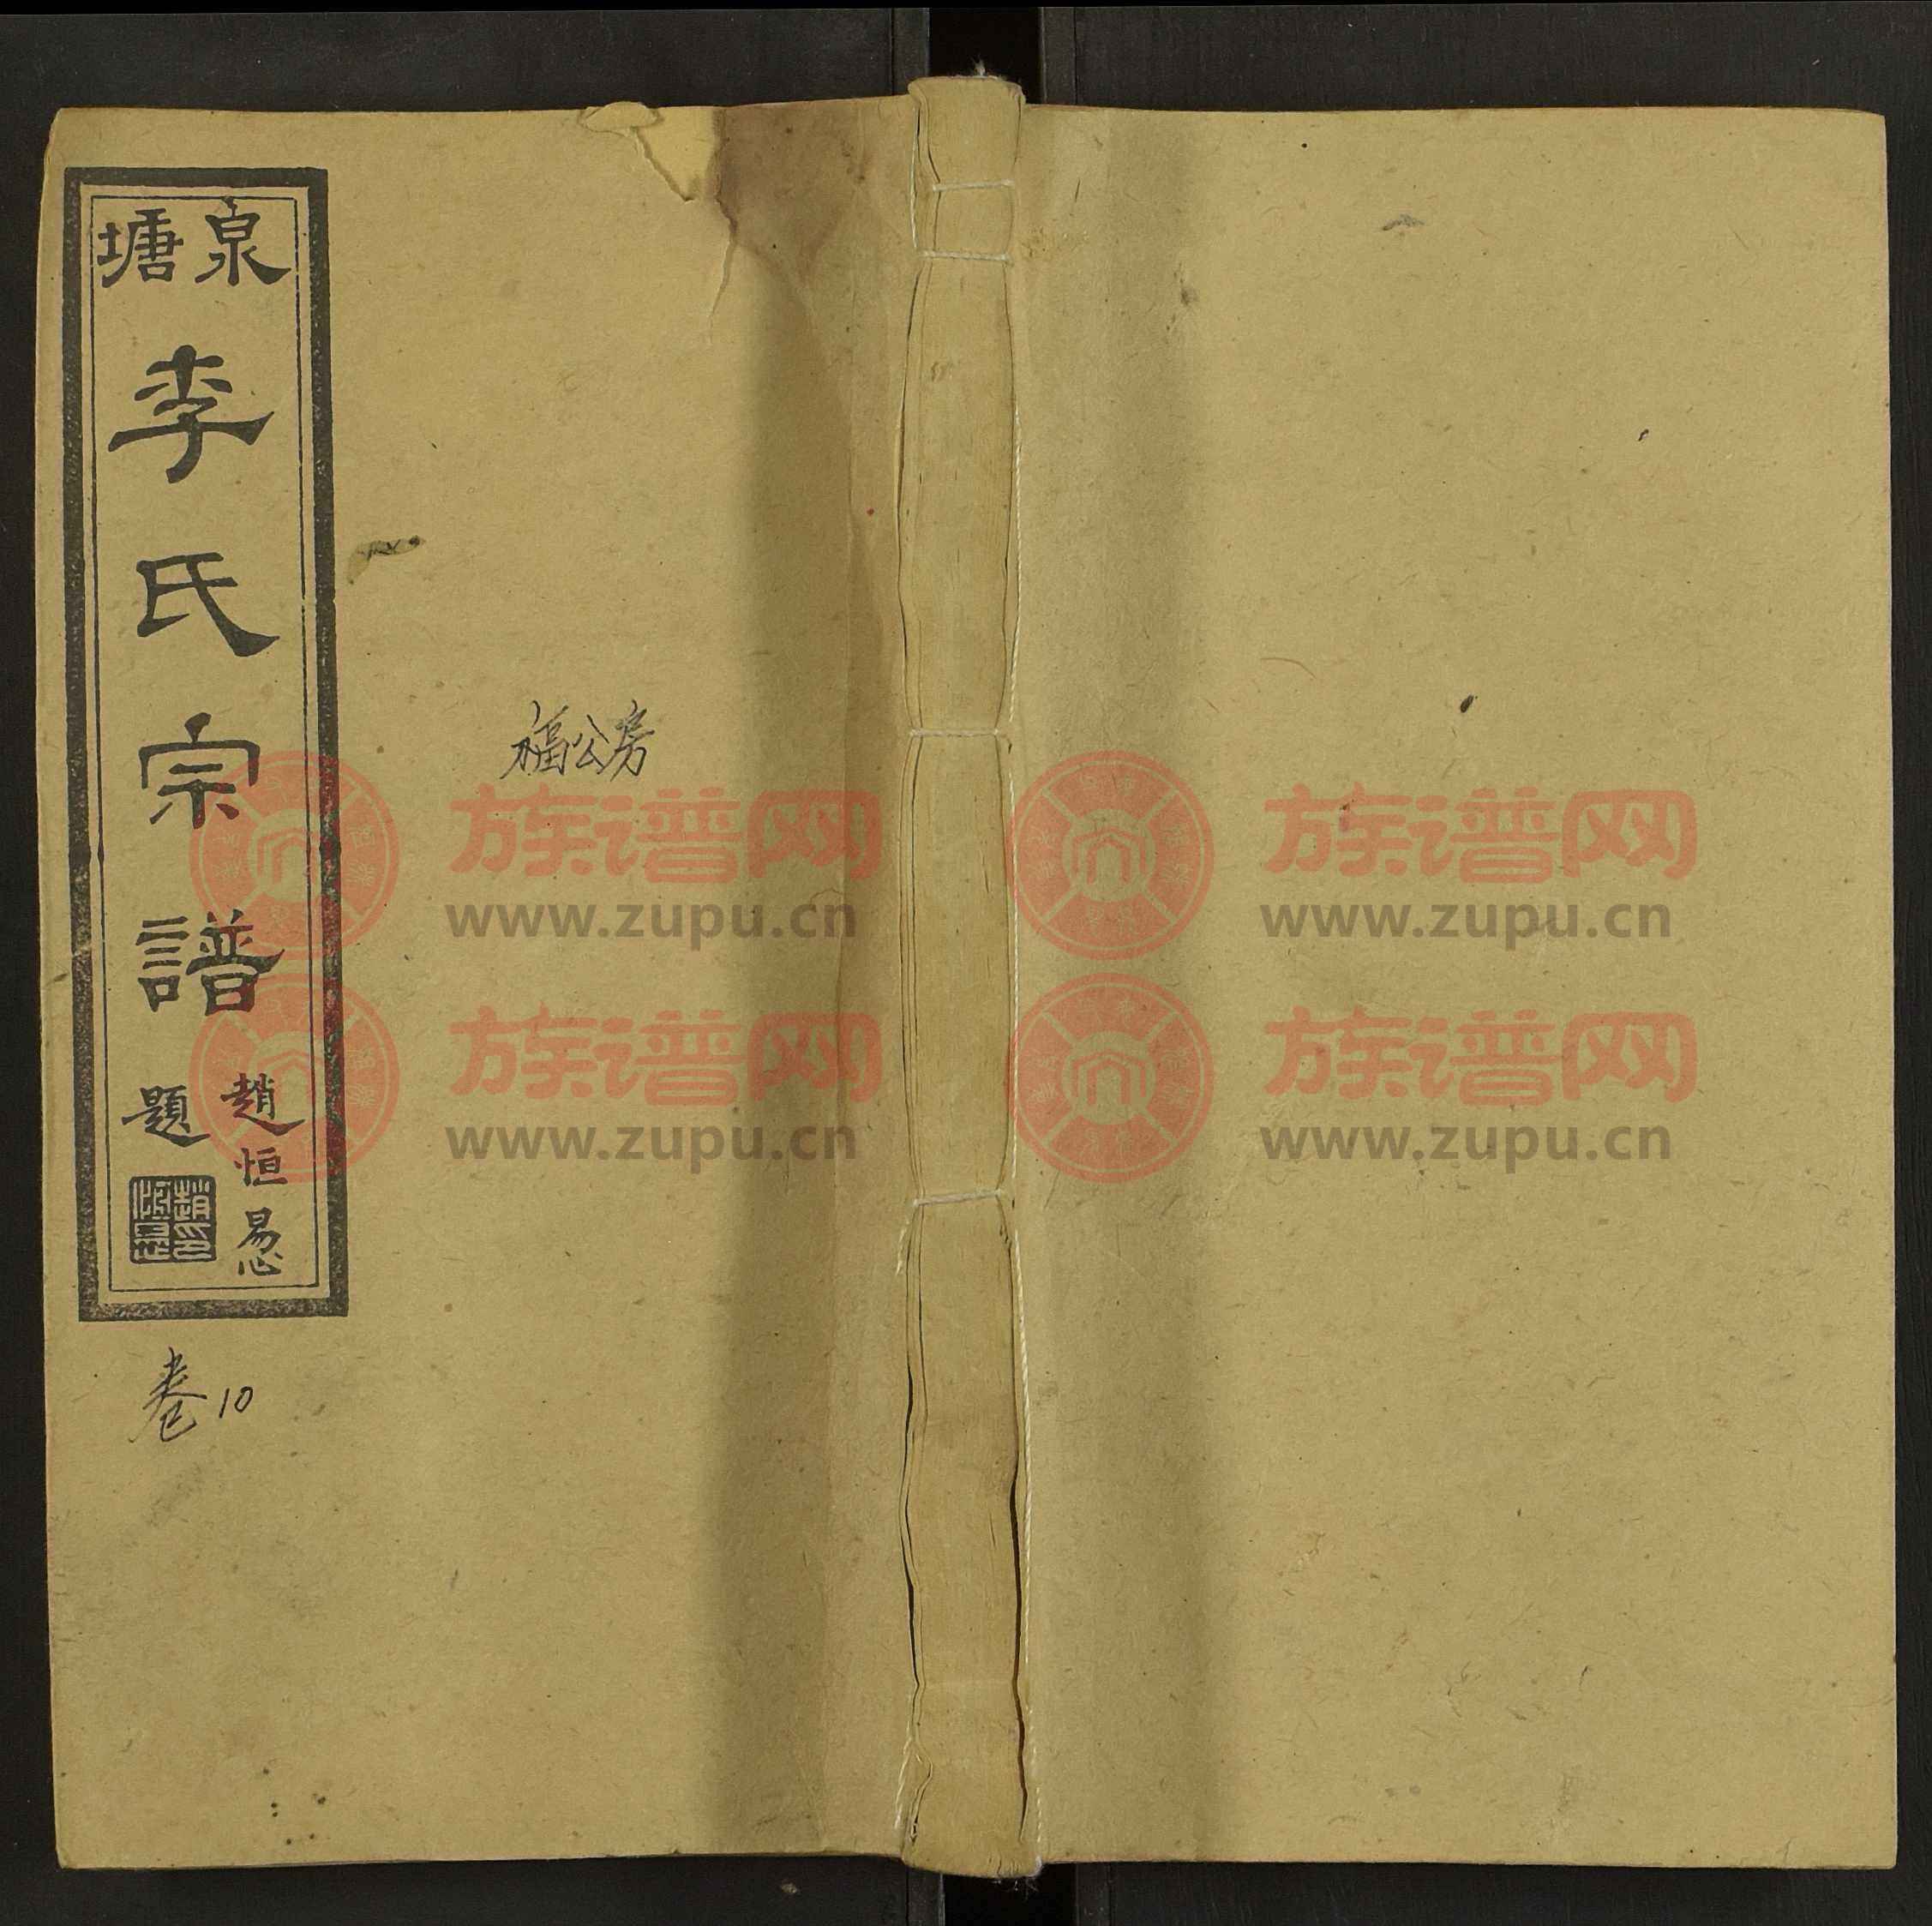 泉塘
李氏宗譜
趙恒惕
題
福公房
卷10
族谱网
www.zupu.cn
族谱网
www.zupu.cn
族谱网
www.zupu.cn
族谱网
www.zupu.cn